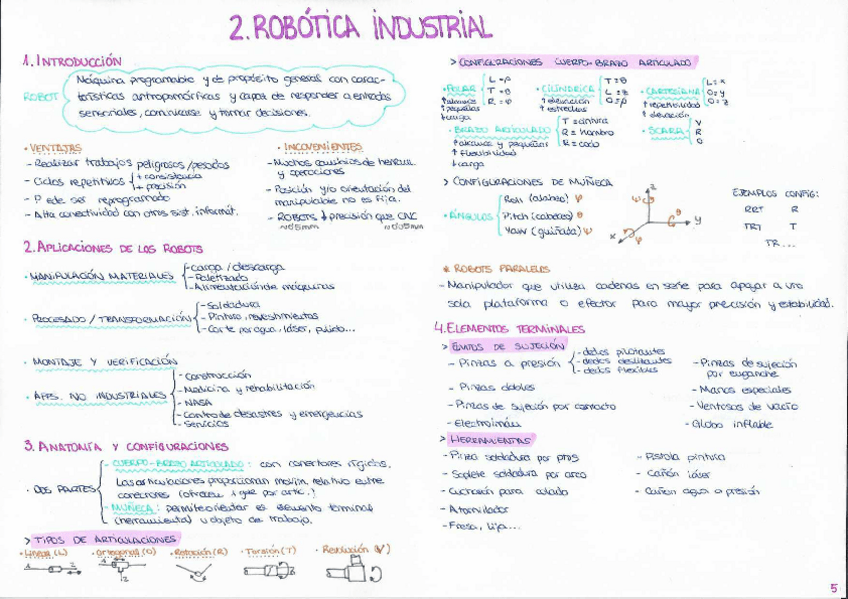 2. ROBÓTICA INDUSTRIAL
1. INTRODUCCIÓN
ROBOT
Máquina programable y de propósito general con carac-
terísticas antropomórficas y capaz de responder a entradas
sensoriales, comunicarse y tomar decisiones.
· VENTAJAS
- Realizar trabajos peligrosos/pesados
- Ciclos repetitivos + consistencia
+ precisión
- Puede ser reprogramado
- Alta conectividad con otros sist. informát.
· INCOVENIENTES
- Muchos cambios de herram.
y operaciones
- Posición y/o orientación del
manipulable no es fija.
- ROBOTS ↓ precisión que CNC
2. APLICACIONES DE LOS ROBOTS
· MANIPULACIÓN MATERIALES
- Carga / descarga
- Paletizado
- Alimentación de máquinas
· PROCESADO / TRANSFORMACIÓN
- Soldadura
- Pintura, revestimientos
- Corte por agua, láser, pulido...
· MONTAJE Y VERIFICACIÓN
· APPS. NO INDUSTRIALES
- Construcción
- Medicina y rehabilitación
- NASA
- Control de desastres y emergencias
- Servicios
3. ANATOMÍA Y CONFIGURACIONES
· DOS PARTES
- CUERPO-BRAZO ARTICULADO: con conectores rígidos.
Las articulaciones proporcionan mov.lin. relativo entre
conectores (ofrecen 1 gdl por artic.)
- MUÑECA: permite orientar el elemento terminal
(herramienta) u objeto de trabajo.
> TIPOS DE ARTICULACIONES
· Lineal (L) · Ortogonal (O) · Rotación (R) · Torsión (T) · Revolución (V)
> CONFIGURACIONES CUERPO-BRAZO ARTICULADO
· POLAR
L = ρ
T = θ
R = φ
↑ alcance
↑ pequeñas
↓ carga
· CILÍNDRICA
T = θ
L = z
O = ρ
↑ elevación
↑ estrechas
· CARTESIANA
L = x
O = y
O = z
↑ repetibilidad
↓ elevación
· BRAZO ARTICULADO
T = cintura
R = hombro
R = codo
↑ alcance y pequeñas
↑ flexibilidad
↓ carga
· SCARA
V
R
O
> CONFIGURACIONES DE MUÑECA
· ÁNGULOS
Roll (alabeo) ψ
Pitch (cabeceo) θ
Yaw (guiñada) ω
z
y
x
EJEMPLOS CONFIG:
RRT R
TRT T
TR...
* ROBOTS PARALELOS
- Manipulador que utiliza cadenas en serie para apoyar a una
sola plataforma o efector para mayor precisión y estabilidad.
4. ELEMENTOS TERMINALES
> ÚTILES DE SUJECIÓN
- Pinzas a presión
- dedos pivotantes
- dedos deslizantes
- dedos flexibles
- Pinzas dobles
- Pinzas de sujeción por contacto
- Electroimán
- Pinzas de sujeción
por enganche
- Manos especiales
- Ventosas de vacío
- Globo inflable
> HERRAMIENTAS
- Pinza soldadura por ptos
- Soplete soldadura por arco
- Cucharón para colada
- Atornillador
- Fresa, lija...
- Pistola pintura
- Cañón láser
- Cañón agua a presión
5